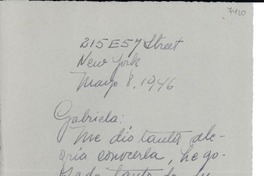 7420
215 E 57 Street
New York
Mayo 8, 1946
Gabriela:
Me dio tanta ale-
gria conocerla, he go-
zado tanto de su